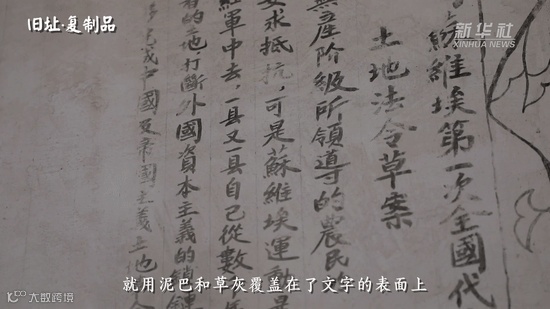 旧址·复制品
新华社
XINHUA NEWS
蘇維埃第一次全國代
土地法令草案
無產階級所領導的農民
求抵抗,可是蘇維埃運動
紅軍中去,一縣又一縣自己從數
的 打斷外國資本主義的鎖鏈
國反帝國主義
就用泥巴和草灰覆盖在了文字的表面上
大数跨境